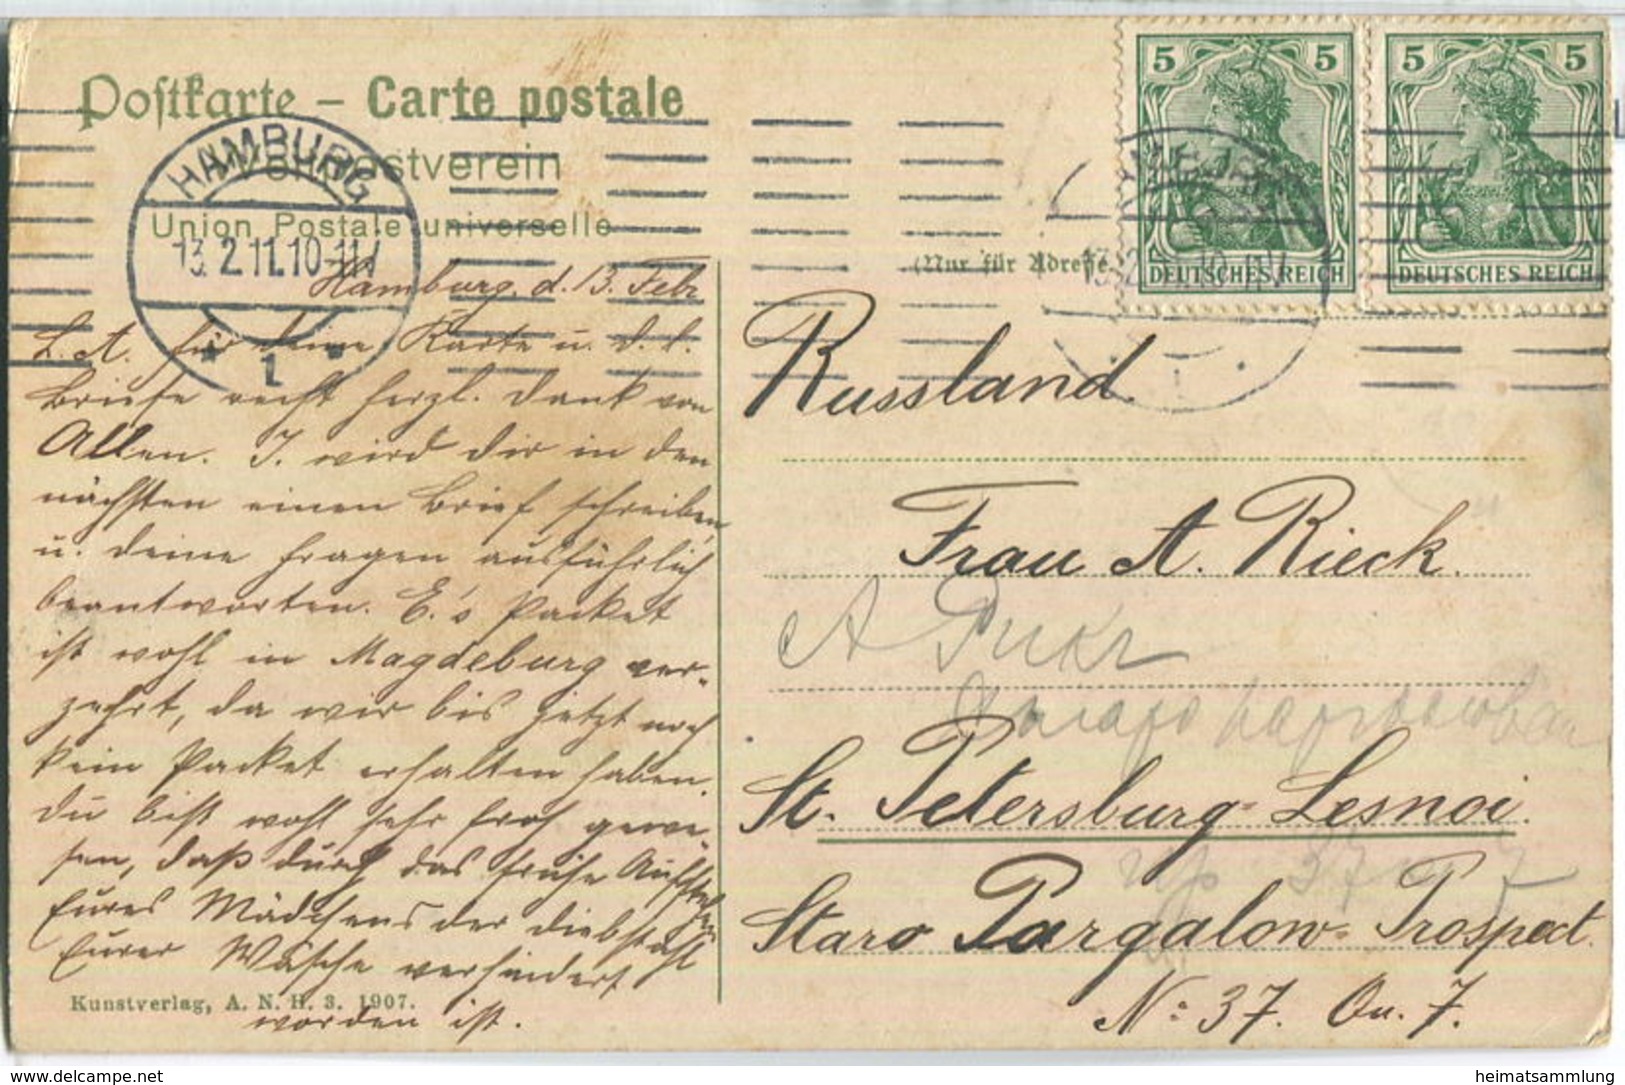 Postkarte – Carte postale
Weltpostverein
Union Postale universelle
(Nur für Adresse
HAMBURG
13.2.11.10-11V
* 1 *
5 5
DEUTSCHES REICH
5 5
DEUTSCHES REICH
Hamburg, d. 13. Febr
L. A. für deine Karte u. d. l.
Briefe recht herzl. Dank von
Allen. J. wird dir in den
nächsten einen Brief schreiben,
u. deine Fragen ausführlich
beantworten. E.'s Packet
ist wohl in Magdeburg ver-
zehrt, da wir bis jetzt noch
kein Packet erhalten haben.
Du bist wohl sehr froh gewe-
sen, daß durch das frühe Aufstehen
Eures Mädchens der Diebstahl
Eurer Wäsche verhindert
worden ist.
Kunstverlag, A. N. H. 3. 1907.
Russland
Frau A. Rieck.
А Рикъ
St. Petersburg-Lesnoi.
37 7
Staro Pargalow-Prospect.
No: 37. Qu. 7.
delcampe.net
heimatsammlung